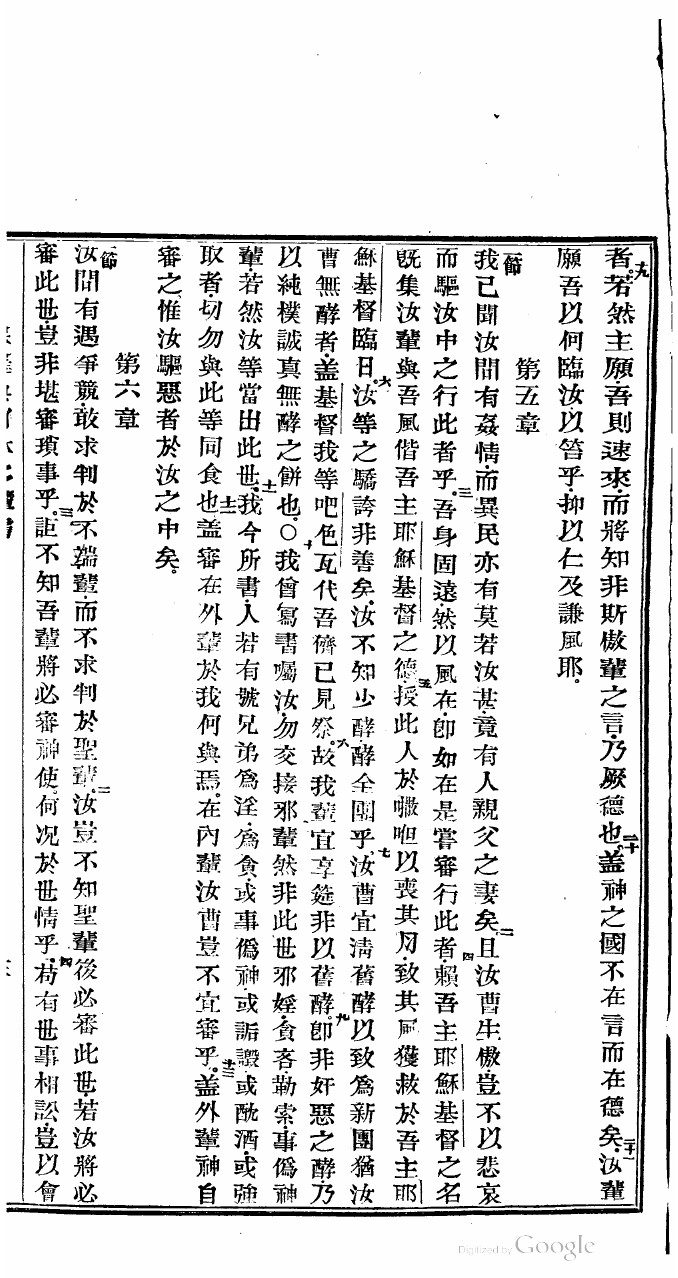 者若然主願吾則速來而將知非斯傲輩之言乃厥德也二十蓋神之國不在言而在德矣二十一汝輩
願吾以何臨汝以笞乎抑以仁及謙風耶
第五章
一節我已聞汝間有姦情而異民亦有莫若汝甚竟有人親父之妻矣二且汝曹生傲豈不以悲哀
而驅汝中之行此者乎三吾身固遠然以風在卽如在是嘗審行此者四賴吾主耶穌基督之名
旣集汝輩與吾風偕吾主耶穌基督之德五授此人於𡃤呾以喪其肉致其風獲救於吾主耶
穌基督臨日六汝等之驕誇非善矣汝不知少酵酵全團乎七汝曹宜清舊酵以致爲新團猶汝
曹無酵者蓋基督我等吧色瓦代吾儕已見祭八故我輩宜享筵非以舊酵卽非奸惡之酵乃
以純樸誠真無酵之餅也〇我曾寫書囑汝勿交接邪輩十然非此世邪婬貪吝勒索事僞神
輩若然汝等當出此世十一我今所書人若有號兄弟爲淫爲貪或事僞神或詬譭或酗酒或強
取者切勿與此等同食也十二蓋審在外輩於我何與焉在內輩汝曹豈不宜審乎十三蓋外輩神自
審之惟汝驅惡者於汝之中矣
第六章
一節汝間有遇爭競敢求判於不端輩而不求判於聖輩二汝豈不知聖輩後必審此世若汝將必
審此世豈非堪審瑣事乎三詎不知吾輩將必審神使何况於世情乎四苟有世事相訟豈以會
Digitized by Google